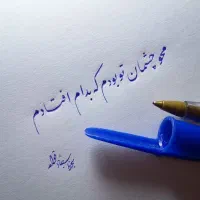 محو چشمان تو بودم که بدام افتادم